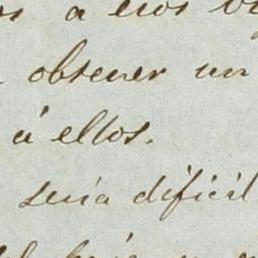 a esos
obtener un
á ellos.
seria dificil